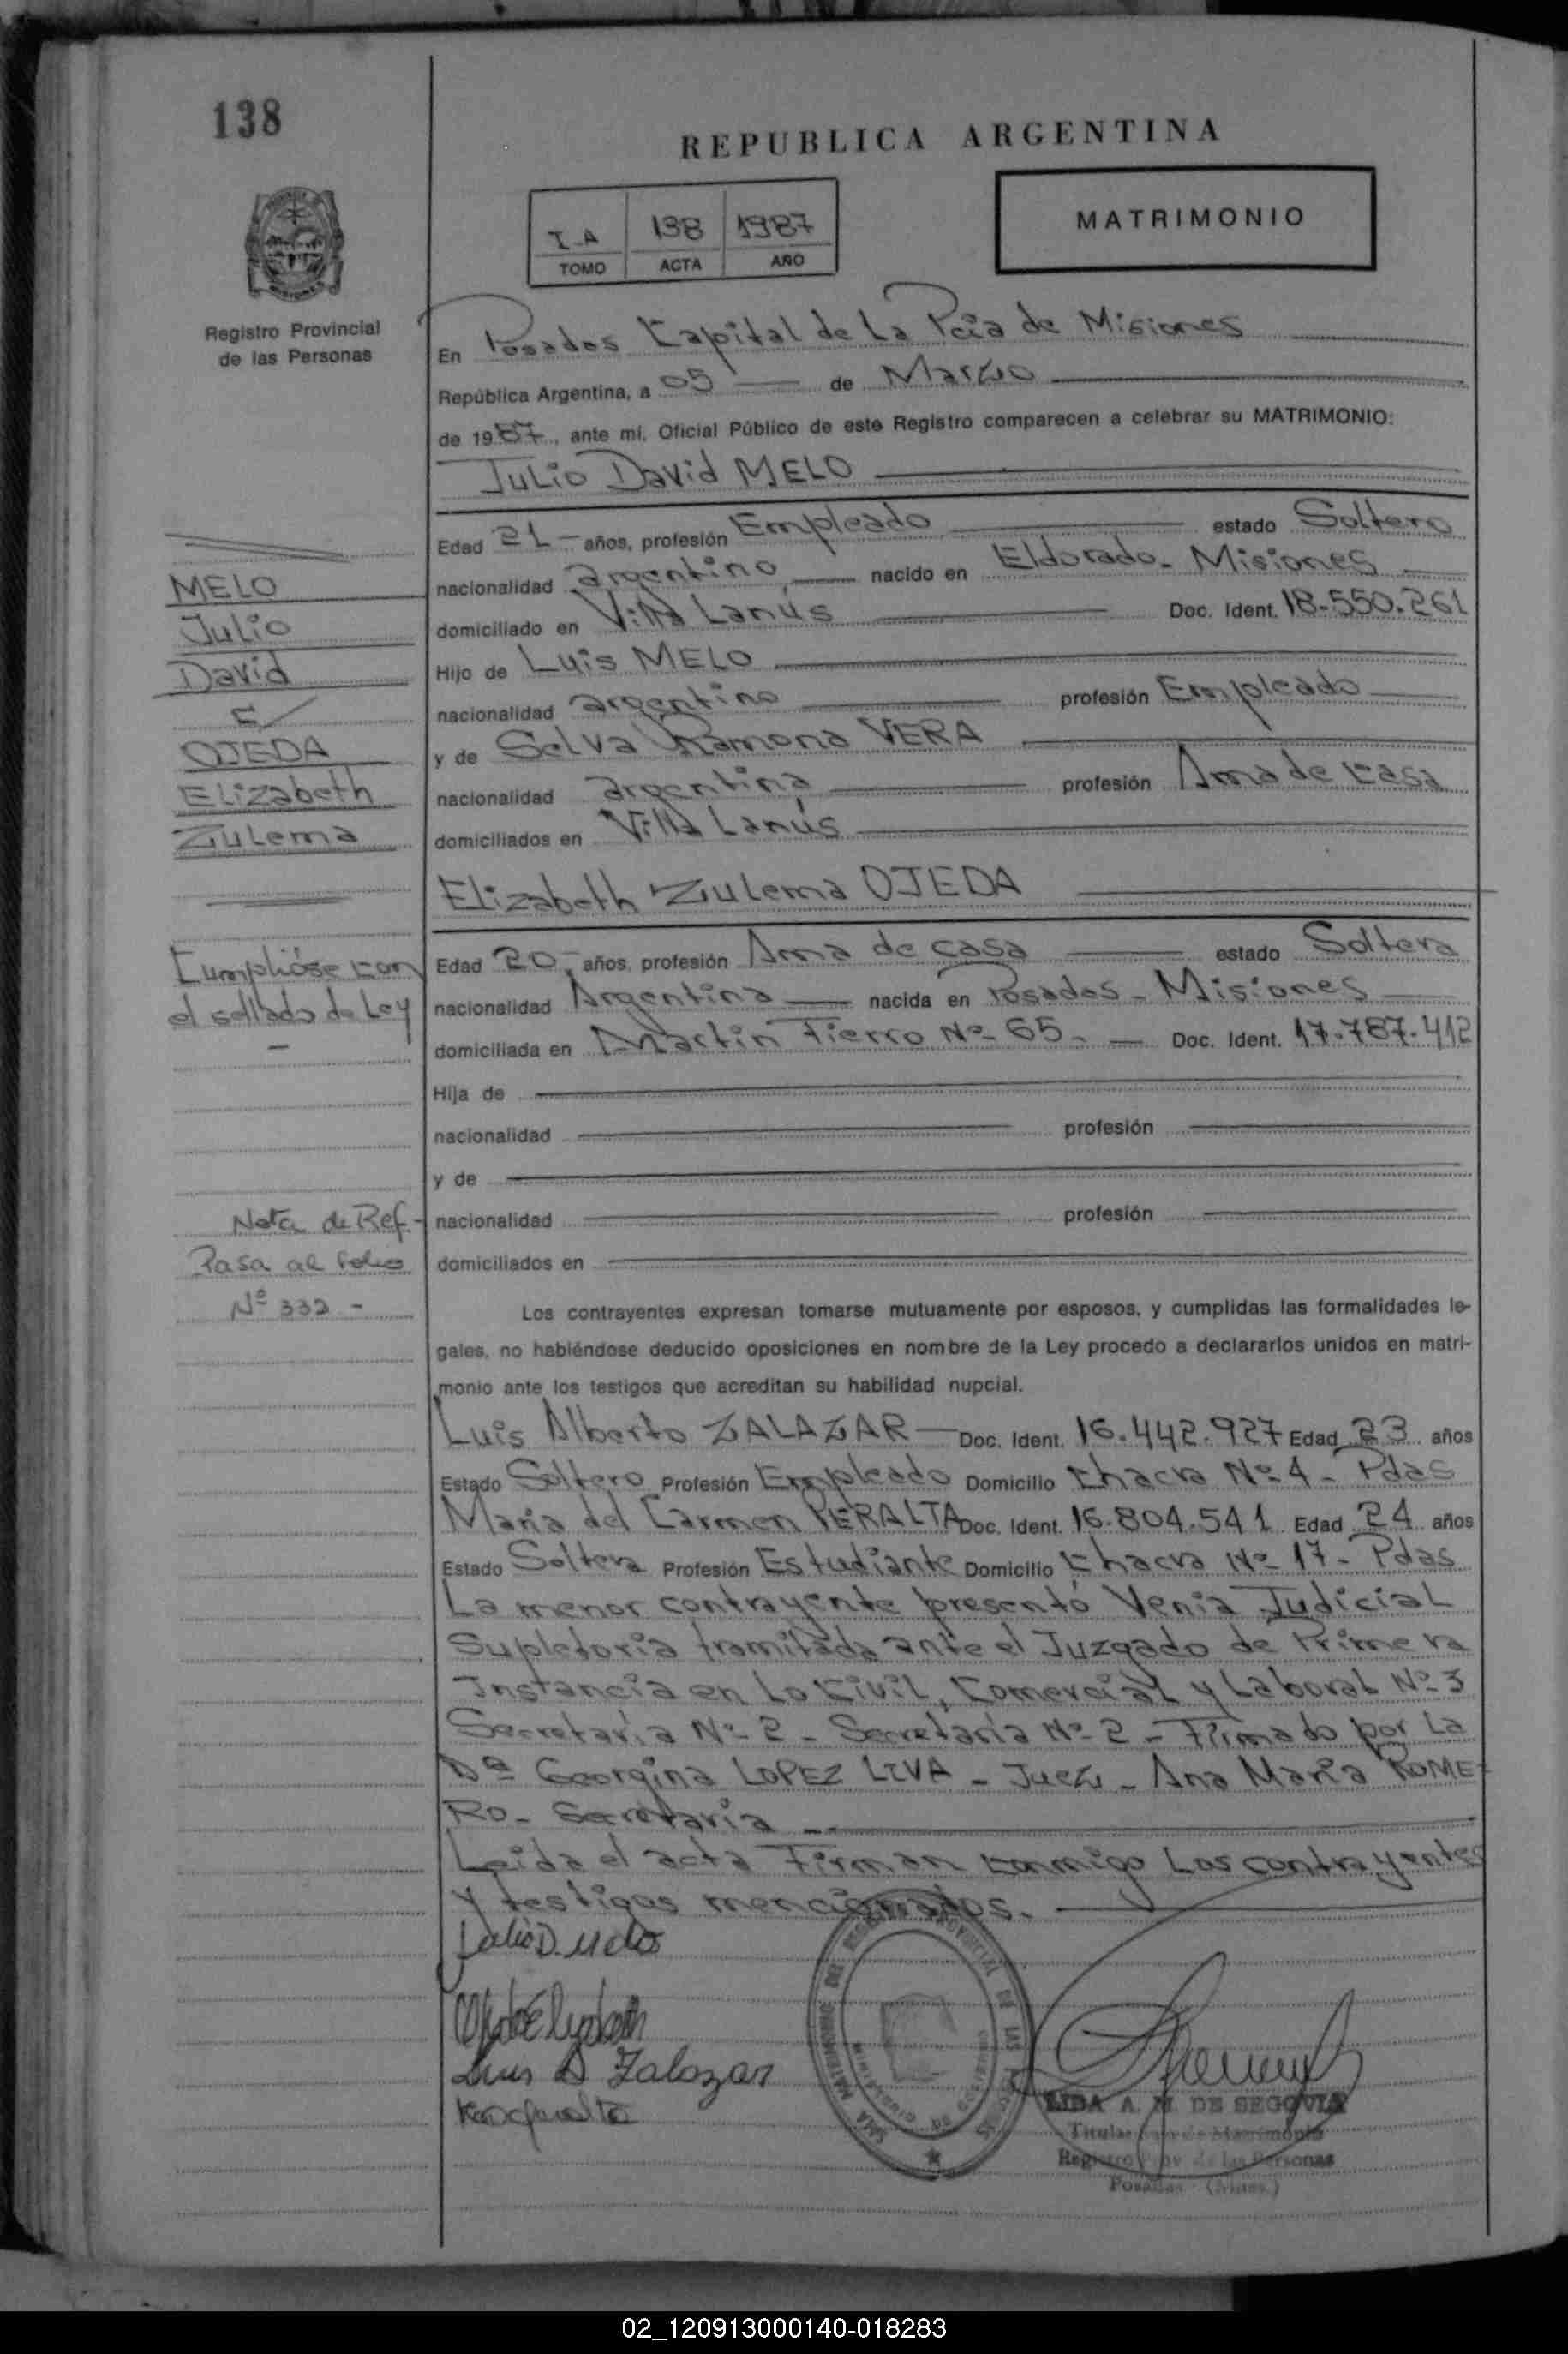 138
REPUBLICA ARGENTINA
I-A 138 1987
TOMO ACTA AÑO
MATRIMONIO
Registro Provincial
de las Personas
En Posadas Capital de La Pcia de Misiones
República Argentina, a 05 de Marzo
de 1987, ante mí, Oficial Público de este Registro comparecen a celebrar su MATRIMONIO:
Julio David MELO
Edad 21 años, profesión Empleado estado Soltero
nacionalidad argentino nacido en Eldorado - Misiones
domiciliado en Villa Lanús Doc. Ident. 18.550.261
Hijo de Luis MELO
nacionalidad argentino profesión Empleado
y de Selva Ramona VERA
nacionalidad argentina profesión Ama de casa
domiciliados en Villa Lanús
Elizabeth Zulema OJEDA
Edad 20 años, profesión Ama de casa estado Soltera
nacionalidad Argentina nacida en Posadas - Misiones
domiciliada en Martin Fierro Nº 65. Doc. Ident. 17.787.412
Hija de
nacionalidad profesión
y de
nacionalidad profesión
domiciliados en
MELO
Julio
David
C/
OJEDA
Elizabeth
Zulema
Cumplióse con
el sellado de Ley
Nota de Ref.-
Pasa al folio
Nº 332 -
Los contrayentes expresan tomarse mutuamente por esposos, y cumplidas las formalidades le-
gales, no habiéndose deducido oposiciones en nombre de la Ley procedo a declararlos unidos en matri-
monio ante los testigos que acreditan su habilidad nupcial.
Luis Alberto ZALAZAR Doc. Ident. 16.442.927 Edad 23 años
Estado Soltero Profesión Empleado Domicilio Chacra Nº 4 - Pdas
Maria del Carmen PERALTA Doc. Ident. 16.804.541 Edad 24 años
Estado Soltera Profesión Estudiante Domicilio Chacra Nº 17 - Pdas
La menor contrayente presentó Venia Judicial
Supletoria tramitada ante el Juzgado de Primera
Instancia en Lo Civil, Comercial y Laboral Nº 3
Secretaria Nº 2 - Secretaria Nº 2 - Firmado por La
Dª Georgina LOPEZ LIVA - Juez - Ana Maria ROME-
RO - Secretaria
Leida el acta Firman conmigo Los contrayentes
y testigos mencionados.
Julio D. Melo
Elizabeth
Luis A. Zalazar
LIDA A. M. DE SEGOVIA
Titular de Matrimonio
Registro Prov. de las Personas
Posadas (Mnes.)
02_120913000140-018283